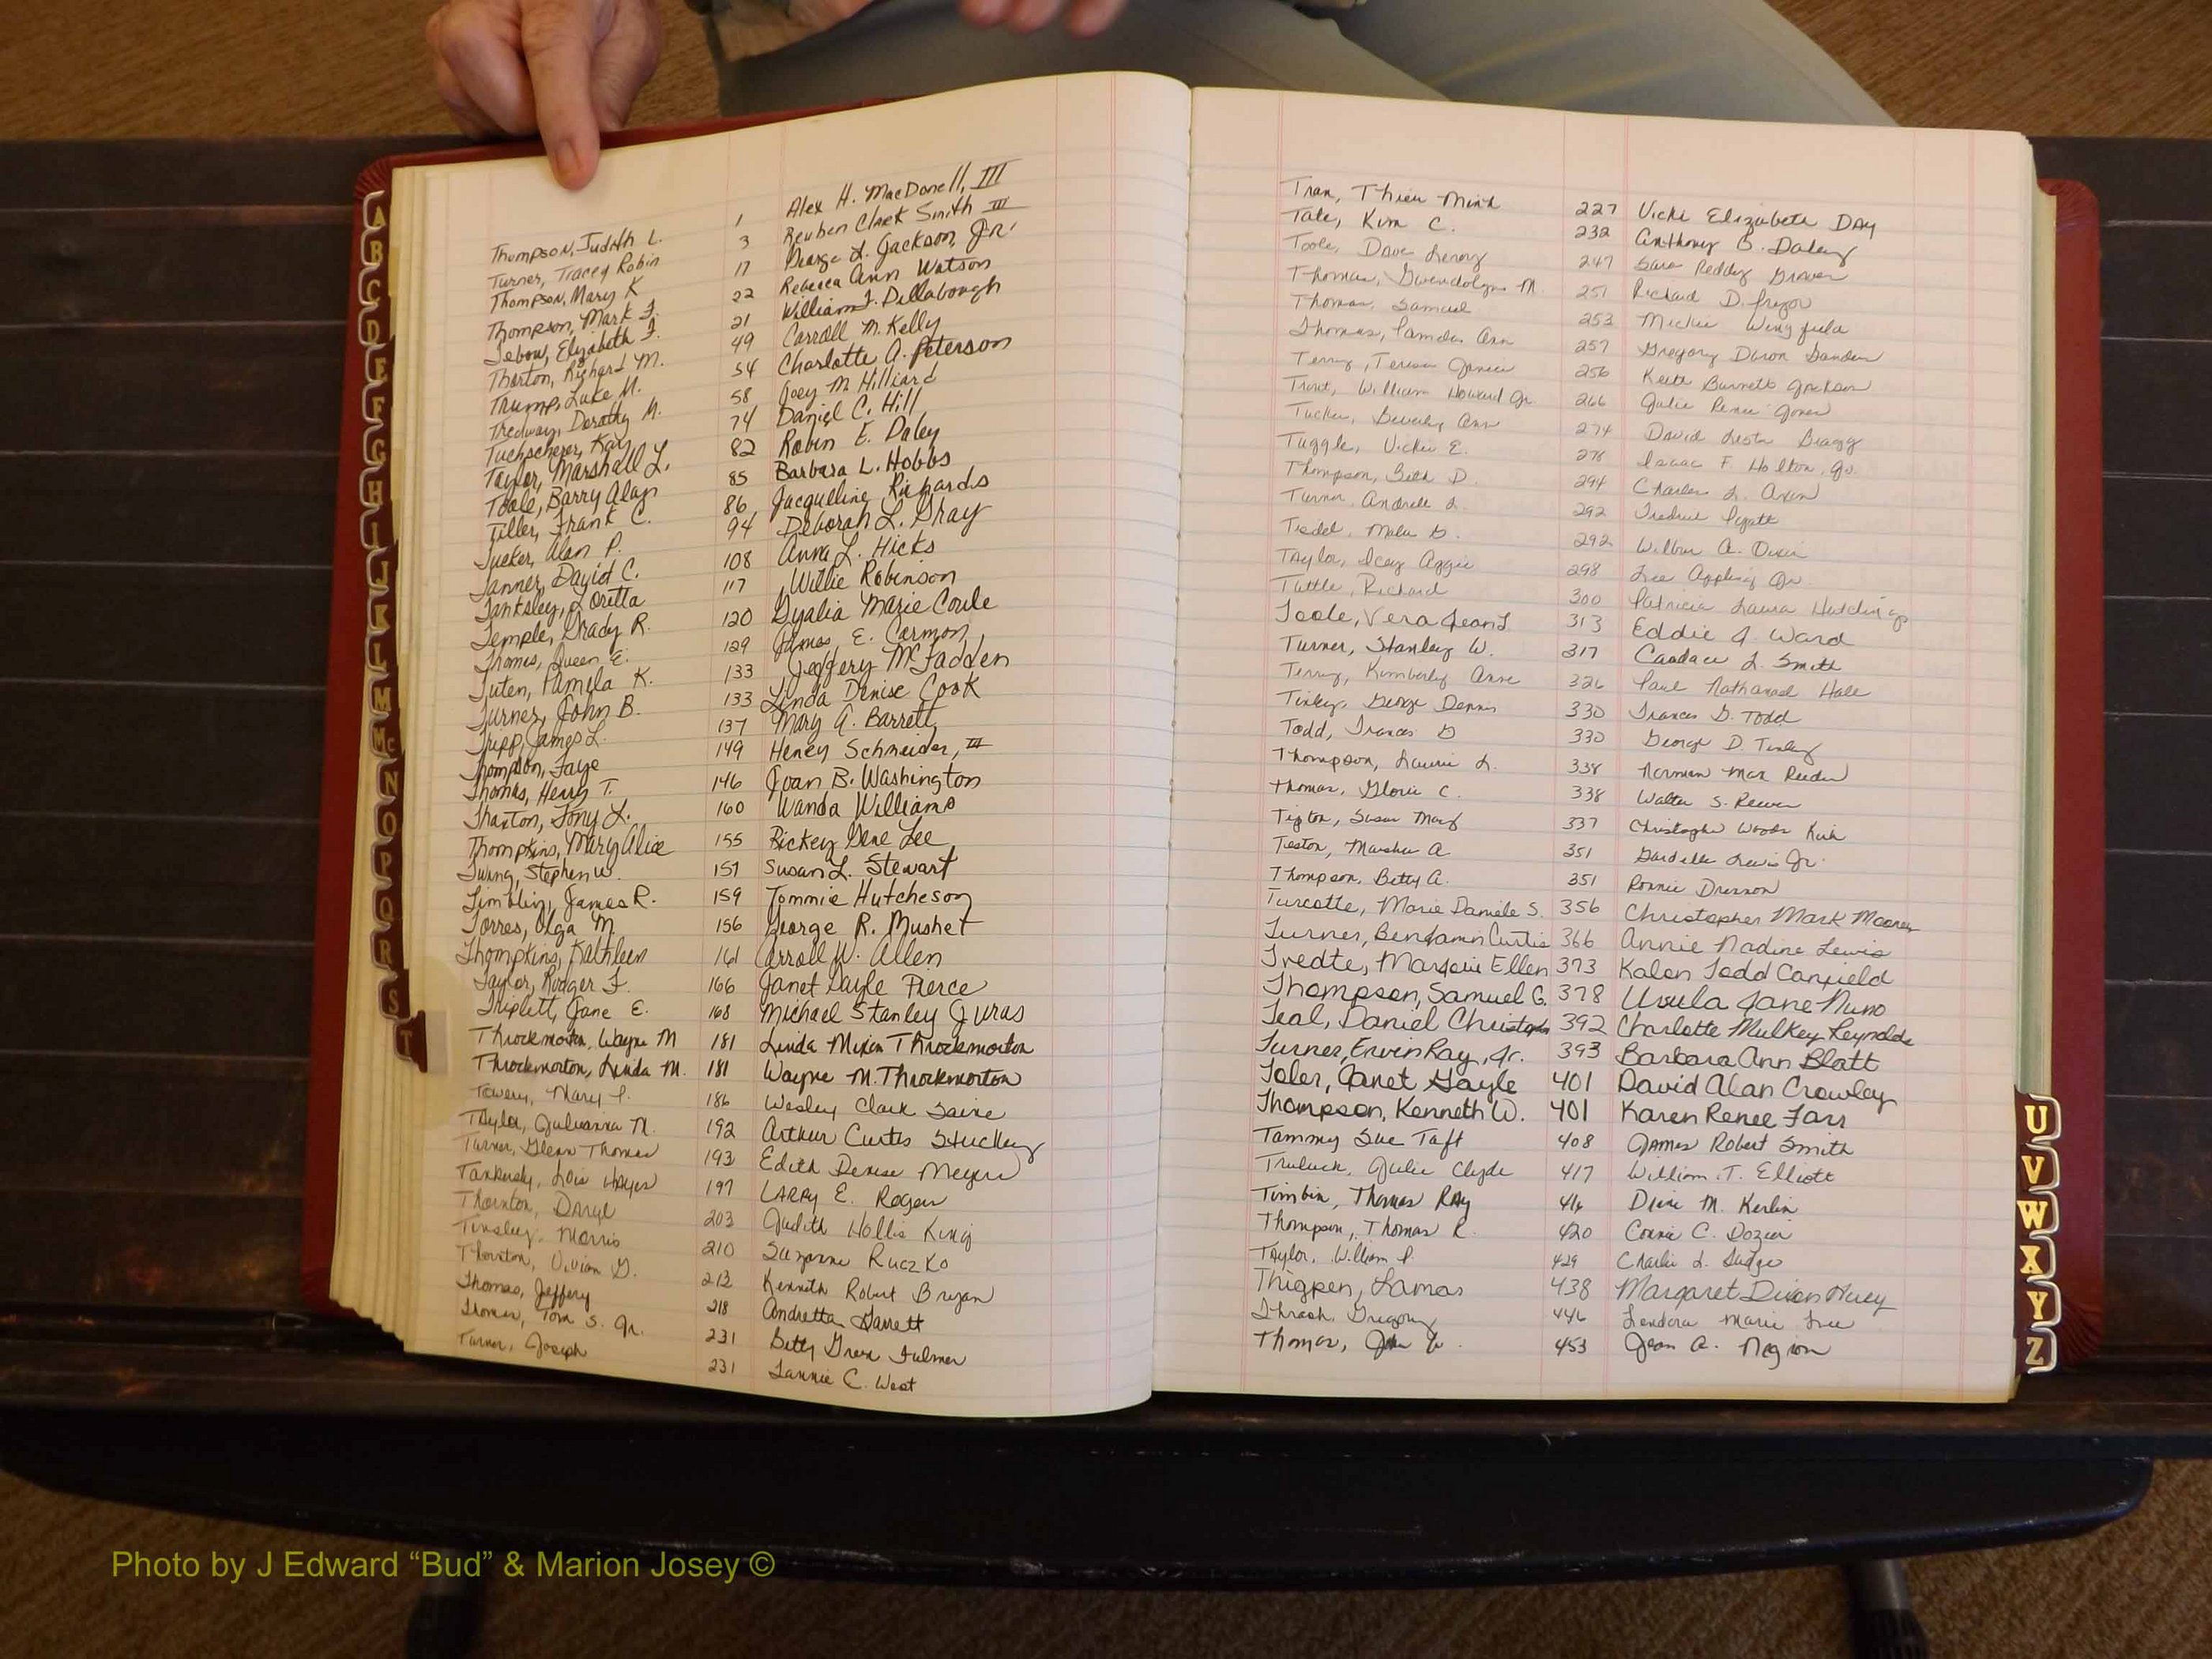 Thompson, Judith L. 1 Alex H. MacDonell, III
Turner, Tracey Robin 3 Reuben Clark Smith III
Thompson, Mary K 17 George L. Jackson, Jr.
Thompson, Mark F. 22 Rebecca Ann Watson
Tebow, Elizabeth F. 21 William J. Dillabough
Thorton, Richard M. 49 Carroll M. Kelly
Trump, Luke N. 54 Charlotte A. Peterson
Tredway, Dorothy M. 58 Joey M. Hilliard
Tuchscherer, Kay 74 Daniel C. Hill
Taylor, Marshall L. 82 Robin E. Daley
Toole, Barry Alan 85 Barbara L. Hobbs
Tiller, Frank C. 86 Jacqueline Richards
Tucker, Alan P. 94 Deborah L. Gray
Tanner, David C. 108 Anna L. Hicks
Tanksley, Loretta 117 Willie Robinson
Temple, Grady R. 120 Dyalia Marie Coule
Thomas, Queen E. 129 James E. Carmon
Tuten, Pamela K. 133 Jeffery McFadden
Turner, John B. 133 Linda Denise Cook
Tripp, James L. 137 Mary A. Barrett
Thompson, Faye 149 Heney Schneider, III
Thomas, Henry T. 146 Joan B. Washington
Thaxton, Tony L. 160 Wanda Williams
Thompkins, Mary Alice 155 Rickey Gene Lee
Twing, Stephen W. 157 Susan L. Stewart
Timblin, James R. 159 Tommie Hutcheson
Torres, Olga M 156 George R. Mushet
Thompkins, Kathleen 161 Carroll W. Allen
Taylor, Rodger F. 166 Janet Gayle Pierce
Triplett, Jane E. 168 Michael Stanley Juras
Throckmorton, Wayne M 181 Linda Mixon Throckmorton
Throckmorton, Linda M. 181 Wayne M. Throckmorton
Towery, Mary P. 186 Wesley Clark Saine
Taylor, Julianna N. 192 Arthur Curtis Stuckey
Turner, Glenn Thomas 193 Edith Denise Meyer
Tankersly, Lois Hayes 197 Larry E. Roger
Thornton, Daryl 203 Judith Hollis King
Tinsley, Morris 210 Suzanne Ruczko
Thornton, Vivian D. 213 Kenneth Robert Bryan
Thomas, Jeffery 218 Andretta Garrett
Thomas, Tom S. Jr. 231 Betty Green Fulmer
Turner, Joseph 231 Lannie C. West
Tran, Thieu Minh 227 Vicki Elizabeth Day
Tate, Kim C. 232 Anthony B. Daley
Toole, Dave Leroy 247 Sara Reddy Graves
Thomas, Gwendolyn M. 251 Richard D.
Thomas, Samuel 253 Mickie Wingfield
Thomas, Pamela Ann 257 Gregory Daron Sanders
Terry, Teresa Janice 256 Keith Burnett Jackson
Trout, William Howard Jr. 266 Julie Renee Jones
Tucker, Beverly Ann 274 David Lester Bragg
Tuggle, Vickie E. 276 Isaac F. Holton, Jr.
Thompson, Beth D. 294 Charles L. Axon
Turner, Andrell L. 292 Fredrick Pyatt
Todd, D. 292 Wilbur A. Owen
Taylor, Icey Aggie 298 Lee Appling Jr.
Tuttle, Richard 300 Patricia Laura Hutchings
Toole, Vera Jean L. 313 Eddie J. Ward
Turner, Stanley W. 317 Candace L. Smith
Terry, Kimberly Anne 326 Paul Nathanael Hale
Tinley, George Dennis 330 Frances G. Todd
Todd, Frances G 330 George D. Tinley
Thompson, Laurie L. 338 Norman Max Reeder
Thomas, Gloria C. 338 Walter S. Reeves
Tipton, Susan Mary 337 Christopher Woods Kirk
Teston, Marsha A. 351 Gardelle Lewis Jr.
Thompson, Betty A. 351 Ronnie Drennon
Turcotte, Marie Daniele S. 356 Christopher Mark Mooney
Turner, Benjamin Curtis 366 Annie Nadine Lewis
Tredte, Marjorie Ellen 373 Kalen Todd Canfield
Thompson, Samuel G. 378 Ursula Jane Nuno
Teal, Daniel Christoph 392 Charlotte Mulkey Reynolds
Turner, Ervin Ray, Jr. 393 Barbara Ann Blatt
Toler, Janet Gayle 401 David Alan Crowley
Thompson, Kenneth W. 401 Karen Renee Farr
Tammy Sue Taft 408 James Robert Smith
Truluck, Julie Clyde 417 William T. Elliott
Timbin, Thomas Ray 416 Diane M. Kerlin
Thompson, Thomas R. 420 Connie C. Dozier
Taylor, William P. 429 Charlie L. Sudge
Thigpen, Lamas 438 Margaret Dixon Huey
Thrash, Gregory 446 Lendora Marie Free
Thomas, John W. 453 Jean A. Negron
A
B
C
D
E
F
G
H
I
J
K
L
M
Mc
N
O
P
Q
R
S
T
U
V
W
X
Y
Z
Photo by J Edward “Bud” & Marion Josey ©